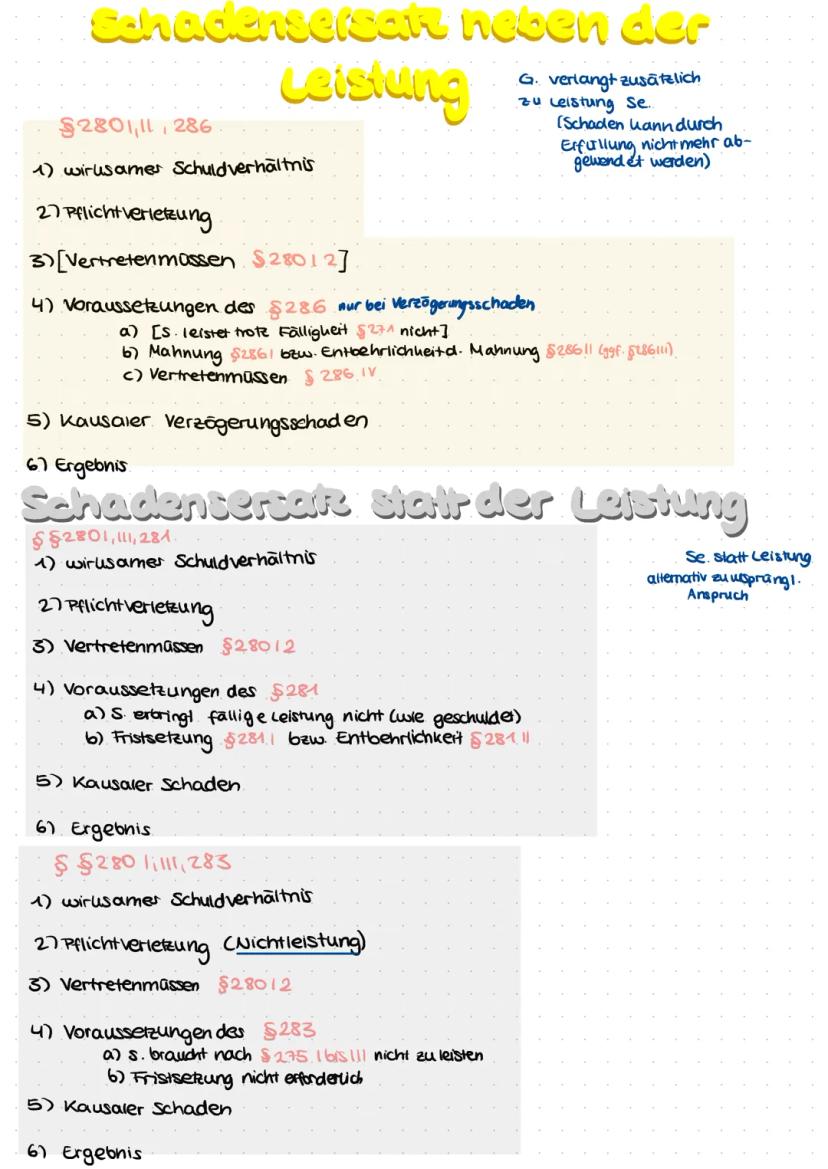 Schadensersatz neben der
Leistung
G. verlangt zusätzlich
zu Leistung Se.
(Schaden kann durch
Erfüllung nicht mehr ab-
gewendet werden)
§280 I, II, 286
1) wirksamer Schuldverhältnis
2) Pflichtverletzung
3) [Vertretenmüssen §280 I 2]
4) Voraussetzungen des §286 nur bei Verzögerungsschaden
a) [S. leistet trotz Fälligkeit §271 nicht]
b) Mahnung §286 I bzw. Entbehrlichkeit d. Mahnung §286 II (ggf. §286 III)
c) Vertretenmüssen § 286 IV
5) Kausaler Verzögerungsschaden
6) Ergebnis
Schadensersatz statt der Leistung
§ §280 I, III, 281
1) wirksamer Schuldverhältnis
Se. statt Leistung
alternativ zu ursprüngl.
Anspruch
2) Pflichtverletzung
3) Vertretenmüssen §280 I 2
4) Voraussetzungen des §281
a) S. erbringt fällige Leistung nicht (wie geschuldet)
b) Fristsetzung §281 I bzw. Entbehrlichkeit §281 II
5) Kausaler Schaden
6) Ergebnis
§ §280 I, III, 283
1) wirksamer Schuldverhältnis
2) Pflichtverletzung (Nichtleistung)
3) Vertretenmüssen §280 I 2
4) Voraussetzungen des §283
a) S. braucht nach §275 I bis III nicht zu leisten
b) Fristsetzung nicht erforderlich
5) Kausaler Schaden
6) Ergebnis